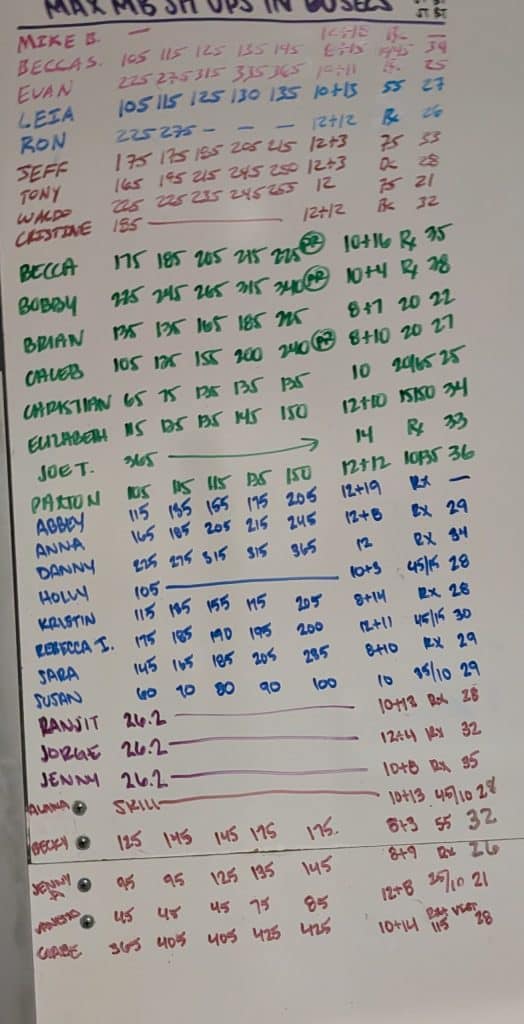 MIKE B. —
BECCA S. 105 115 125 135 145
EVAN 225 275 315 335 365
LEIA 105 115 125 130 135 10+13 55 27
RON 225 275 — — — 12+12 Rx 26
JEFF 175 175 185 205 215 12+3 75 33
TONY 165 195 215 245 250 12+3 28
WALDO 225 225 235 245 255 12 75 21
CRISTINE 185 12+12 Rx 32
BECCA 175 185 205 215 225 PR 10+16 Rx 35
BOBBY 225 245 265 315 340 PR 10+4 Rx 28
BRIAN 135 135 165 185 225 8+7 20 22
CALEB 105 125 155 200 240 PR 8+10 20 27
CHRISTIAN 65 75 125 135 135 10 20/65 25
ELIZABETH 115 125 135 145 150 12+10 15/50 34
JOE T. 365 → 14 Rx 33
PAXTON 105 115 115 135 150 12+12 10/35 36
ABBEY 115 135 155 175 205 12+19 Rx —
ANNA 165 185 205 215 245 12+8 Rx 29
DANNY 225 275 315 315 365 12 Rx 34
HOLLY 105 10+3 45/15 28
KRISTIN 115 135 155 175 205 8+14 Rx 28
REBECCA I. 175 185 190 195 200 12+11 45/15 30
SARA 145 165 185 205 235 8+10 Rx 29
SUSAN 60 70 80 90 100 10 35/10 29
RANJIT 26.2 10+13 Rx 28
JORGE 26.2 12+4 Rx 32
JENNY 26.2 10+8 Rx 35
ALANA SKILL 10+13 45/10 28
BECKY 125 145 145 175 175. 8+3 55 32
JENNY 95 95 125 135 145 8+9 Rx 26
45 45 45 75 85 12+8 25/10 21
GABE 365 405 405 425 425 10+14 Rx+ VEST 115 28